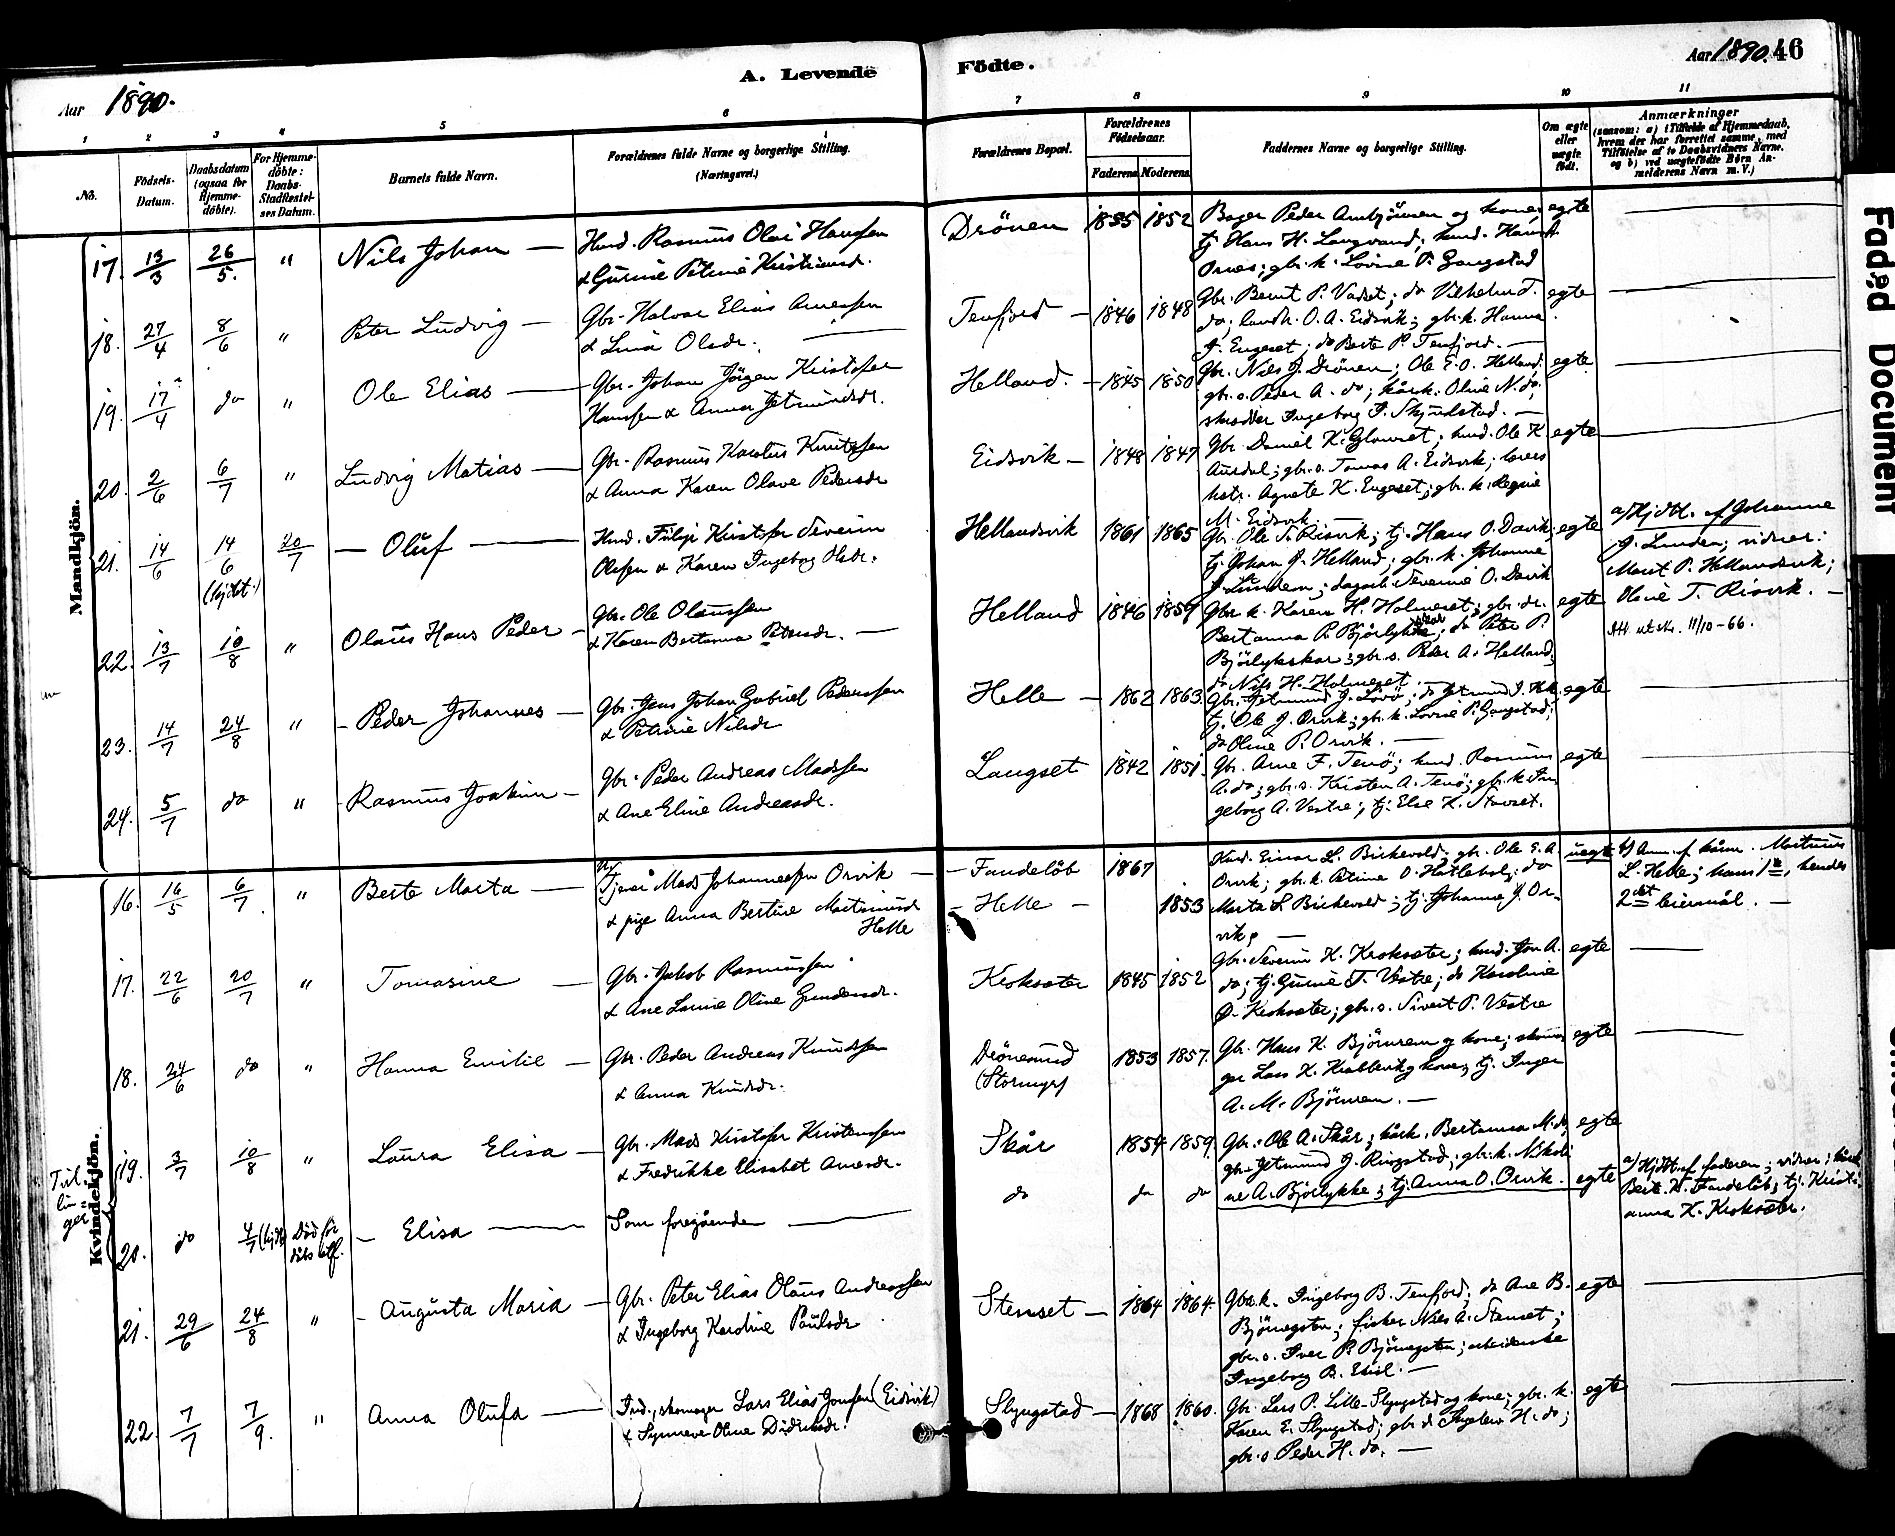 A. Levende Födte.
Aar 1890.
Aar 1890. 46
1 2 3 4 5 6 7 8 9 10 11
No.
Födsels-Datum.
Daabsdatum (ogsaa for Hjemme-döbte).
For Hjemme-döbte: Daabs-Stadfæstel-ses Datum.
Barnets fulde Navn.
Forældrenes fulde Navne og borgerlige Stilling.
(Næringsvei.)
Forældrenes Bopæl.
Forældrenes Födselsaar.
Faderens Moderens
Faddernes Navne og borgerlige Stilling.
Om ægte eller uægte födt.
Anmærkninger
(saasom: a) i Tilfælde af Hjemmedaab, hvem der har forrettet samme, med Tilföielse af to Daabsvidners Navne, og b) ved uægtefödte Börn An-melderens Navn m. V.)
Mandkjön.
17. 13/3 26/5. " Nils Johan —
Kmd. Rasmus Olai Hansen
& Gurine Petrine Kristiansd.
Drönen 1855 1852
egte
18. 27/4 8/6 " Peter Ludvig —
Gbr. Halvar Elias Arnessen
& Lina Olsdr.
Tenfjord — 1846 1848
Gbr. Bernt P. Vadset; do Vilhelm T.
do; landh. O. A. Eidsvik; gbr. k. Hanna
J. Engeset; do Berte P. Tenfjord. —
egte
19. 17/4 do " Ole Elias —
Gbr. Johan Jörgen Kristofer
Hansen & Anna Jetmundsdr.
Helland. — 1845 1850
Gbr. Nils J. Drönen; Ole E. O. Helland;
gbr. s. Peder A. do; kårk. Oline N. do;
Ingeborg I. Skjindstad. —
egte
20. 2/6 6/7 " Ludvig Matias —
Gbr. Rasmus Karolus Knutssen
& Anna Karen Olave Pedersdr
Eidsvik — 1848 1847
Gbr. Daniel K. Glomset; kmd. Ole K.
Aursdal; gbr. s. Tomas A. Eidsvik; lærers
hstr. Agnete K. Engeset; gbr. k. Regine
M. Eidsvik. —
egte
21. 14/6 14/6 (hjdt.) 20/7 — Oluf —
Kmd. Filip Kristofer Severin
Olsen & Karen Ingeborg Pedr.
Hellandsvik 1861 1865
Gbr. Ole T. Risvik; tj. Hans O. Davik;
tj. Johan J. Helland; gbr. k. Johanne
J. Lunden; Severine O. Davik
egte
a/ Hjdtt. af Johanne
J. Lunden; vidner:
Marit P. Hellandsvik;
Oline T. Risvik. —
22. 13/7 10/8 " Olaus Hans Peder —
Gbr. Ole Olaussen
& Karen Bertanna Petersdr. —
Helland 1846 1859
Gbr. k. Karen H. Holmeset; gbr. dr.
Bertanna P. Bjørlykskar; do Petra P.
Björlykskar; gbr. s. Peder A. Helland;
do Nils H. Holmeset.
egte
Att. utst. 11/10-66.
23. 14/7 24/8 " Peder Johannes —
Gbr. Jens Johan Gabriel Pederssen
& Petrine Nilsdr
Helle — 1862 1863.
Gbr. Jetmund J. Lövö; do Jetmund J. Helle
tj. Ole J. Orvik; gbr. k. Lovise P. Gangstad;
do Oline P. Orvik. —
egte
24. 5/7 do " Rasmus Joakim —
Gbr. Peder Andreas Madssen
& Ane Eline Andreasdr.
Langset 1842 1851.
Gbr. Arne F. Tenö; kmd. Rasmus
A. do; gbr. s. Kristen A. Tenö; gbr. k. In-
geborg A. Vestre; tj. Else K. Stavset.
egte
Kvindekjön.
16. 16/5 6/7. " Berte Marta —
Ug. Tjener Mads Johannessen Orvik —
& pige Anna Bertine Martinusd Helle
— Fandelöb 1867
— Helle — 1853
Kmd. Einar L. Birkevold; gbr. Ole E. A.
Orvik; gbr. k. Petrine O. Hatlebol; do
Marta L. Birkevold; tj. Johanne J. Or-
vik. —
uegte
b/ Anm. f. kårm. Martinus
L. Helle; hans 1ste, hendes
2det leiermål. —
17. 22/6 20/7 " Tomasine —
Gbr. Jakob Rasmussen
& Ane Lovine Oline Gundersdr.
Kroksæter 1845 1852
Gbr. Severin K. Kroksæter; kmd. Jon A.
do; tj. Gurine T. Vestre; do Karoline
O. Kroksæter; gbr. s. Sivert P. Vestre
egte —
18. 24/6 do " Hanna Emilie —
Gbr. Peder Andreas Knudssen
& Anna Knudsdr.
Drönesund (Stormyr) 1853 1857.
Gbr. Hans K. Björnrem og kone; skoma-
ger Lars K. Krabbevik og kone; tj. Inger
A. M. Björnrem. —
egte —
Tvil-
lin-
ger
19. 3/7 10/8 " Laura Elisa —
Gbr. Mads Kristofer Kristenssen
& Fredrikke Elisabet Arnesdr.
Skår 1854 1859.
Gbr. Ole A. Skår; kårk. Bertanna M. do;
gbr. Jetmund J. Ringstad; gbr. k. Nikoli-
ne A. Bjørlykke; tj. Anna O. Orvik.
egte
20. do 4/7 (hjdt) Död för dåbs stf. — Elisa —
Som foregående —
do do do
egte
a/ Hjdtt. af faderen; vidner: kårk.
Berte K. Fandelöb; tj. Kristi-
anna K. Kroksæter.
21. 29/6 24/8 " — Augusta Maria —
Gbr. Peter Elias Olaus Andreassen
& Ingeborg Karoline Paulsdr
Stenset — 1864 1864.
Gbr. k. Ingeborg B. Tenfjord; do Ane B.
Björnegsten; fisker Nils A. Stenset;
gbr. s. Iver P. Björnegsten; arbeiderske
Ingeborg B. —
egte
22. 7/7 7/9. " Anna Olufa —
Ind., skomager Lars Elias Jonsen (Eidsvik)
& Synneve Oline Didriksdr.
Slyngstad — 1868 1860.
Gbr. Lars P. Lille-Slyngstad og kone; gbr. k.
Karen E. Slyngstad; gbr. d. H. do;
gbr. s. Peder H. do. —
egte
Faded Document